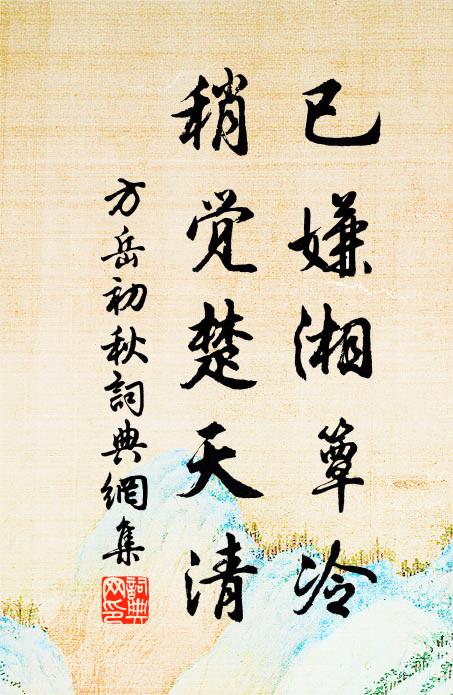 已嫌湘簟冷
稍觉楚天清
方岳初秋詞典網集
詞典网印